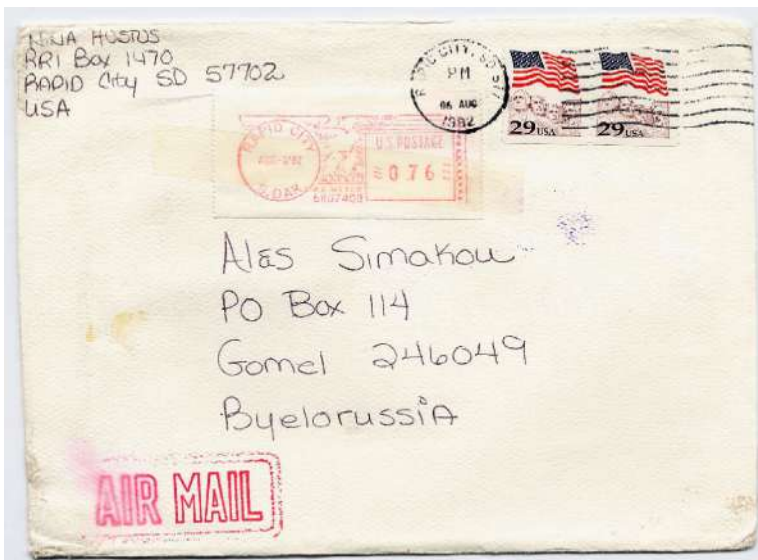 NINA HUSTUS
RR1 Box 1470
RAPID City SD 57702
USA
RAPID CITY, SD 577
PM
06 AUG
1992
29 USA
29 USA
RAPID CITY
S. DAK
U.S. POSTAGE
0.76
Ales Simakou
PO Box 114
Gomel 246049
Byelorussia
AIR MAIL